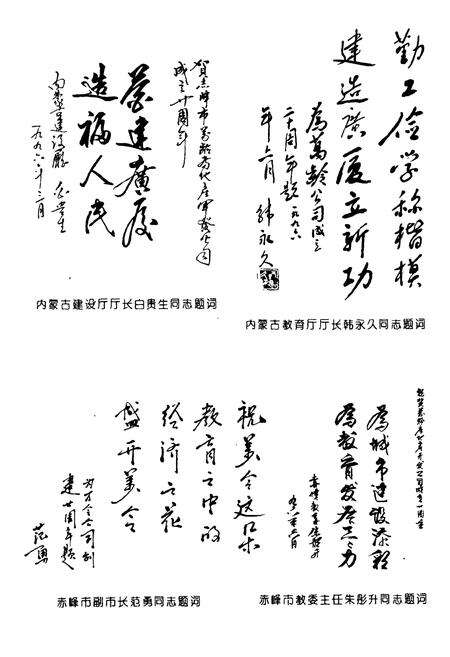 贺赤峰市万龄房地产开发公司
成立廿周年
营建广厦
造福人民
内蒙建设厅 白贵生
一九九六年三月
内蒙古建设厅厅长白贵生同志题词
勤工俭学称楷模
建造廣厦立新功
為萬龄公司成立
二十周年题 一九九六
年六月 韩永久
内蒙古教育厅厅长韩永久同志题词
祝万令这朵
教育之中的
经济之花
盛开万令
为万令公司创
建廿周年题
范勇
赤峰市副市长范勇同志题词
為城市建设添彩
為教育发展出力
赤峰市教委主任朱彤升同志题词